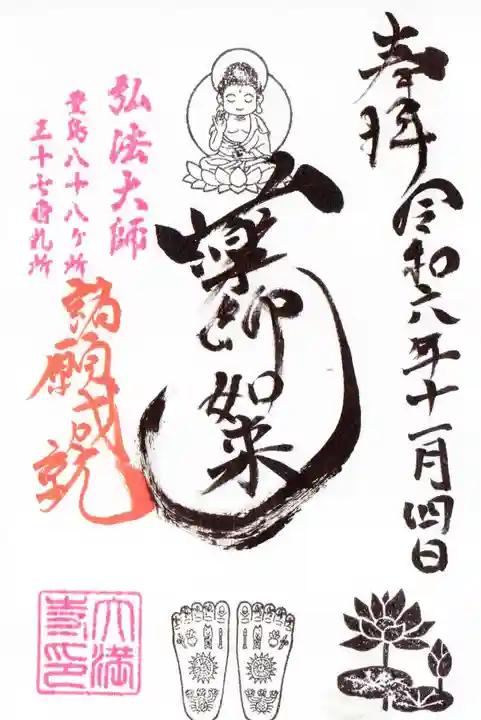 奉拝 令和六年十一月四日
薬師如来
弘法大師
豊島八十八ヶ所
三十七番札所
諸願成就
大満
寺印